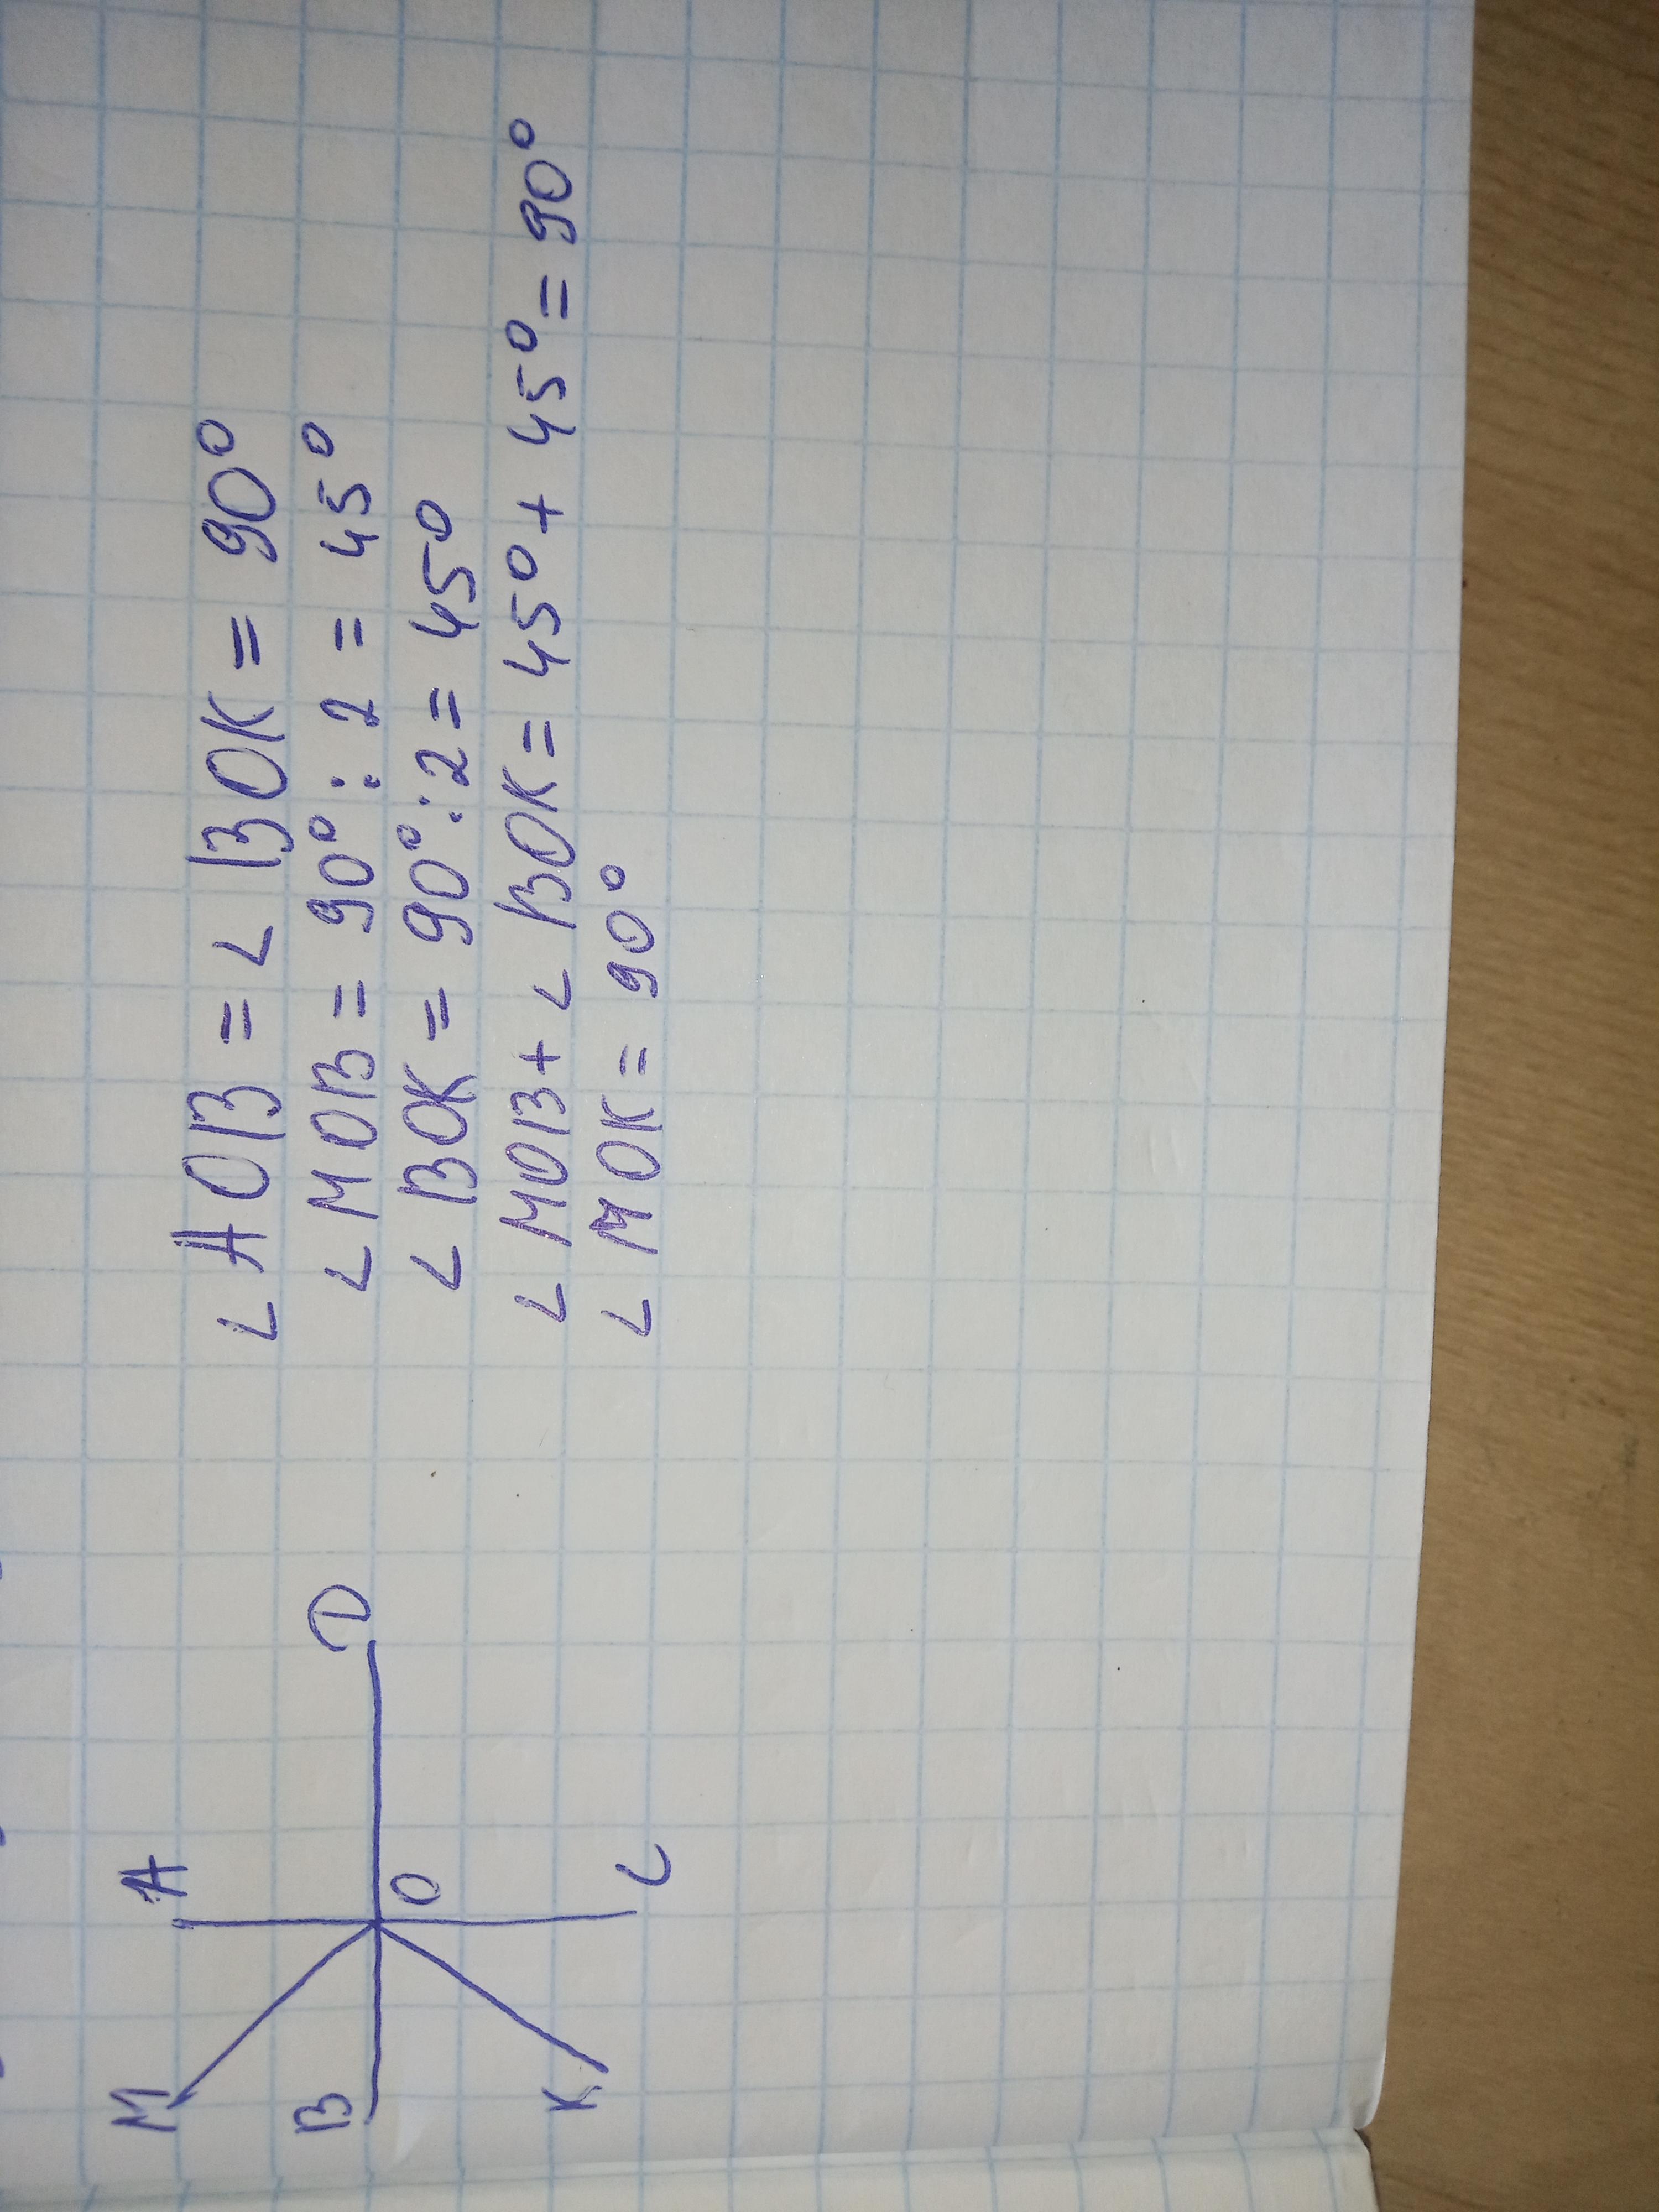 M
A
B
O
D
K
C
∠ AOB = ∠ BOK = 90°
∠ MOB = 90° : 2 = 45°
∠ BOK = 90° : 2 = 45°
∠ MOB + ∠ BOK = 45° + 45° = 90°
∠ MOK = 90°